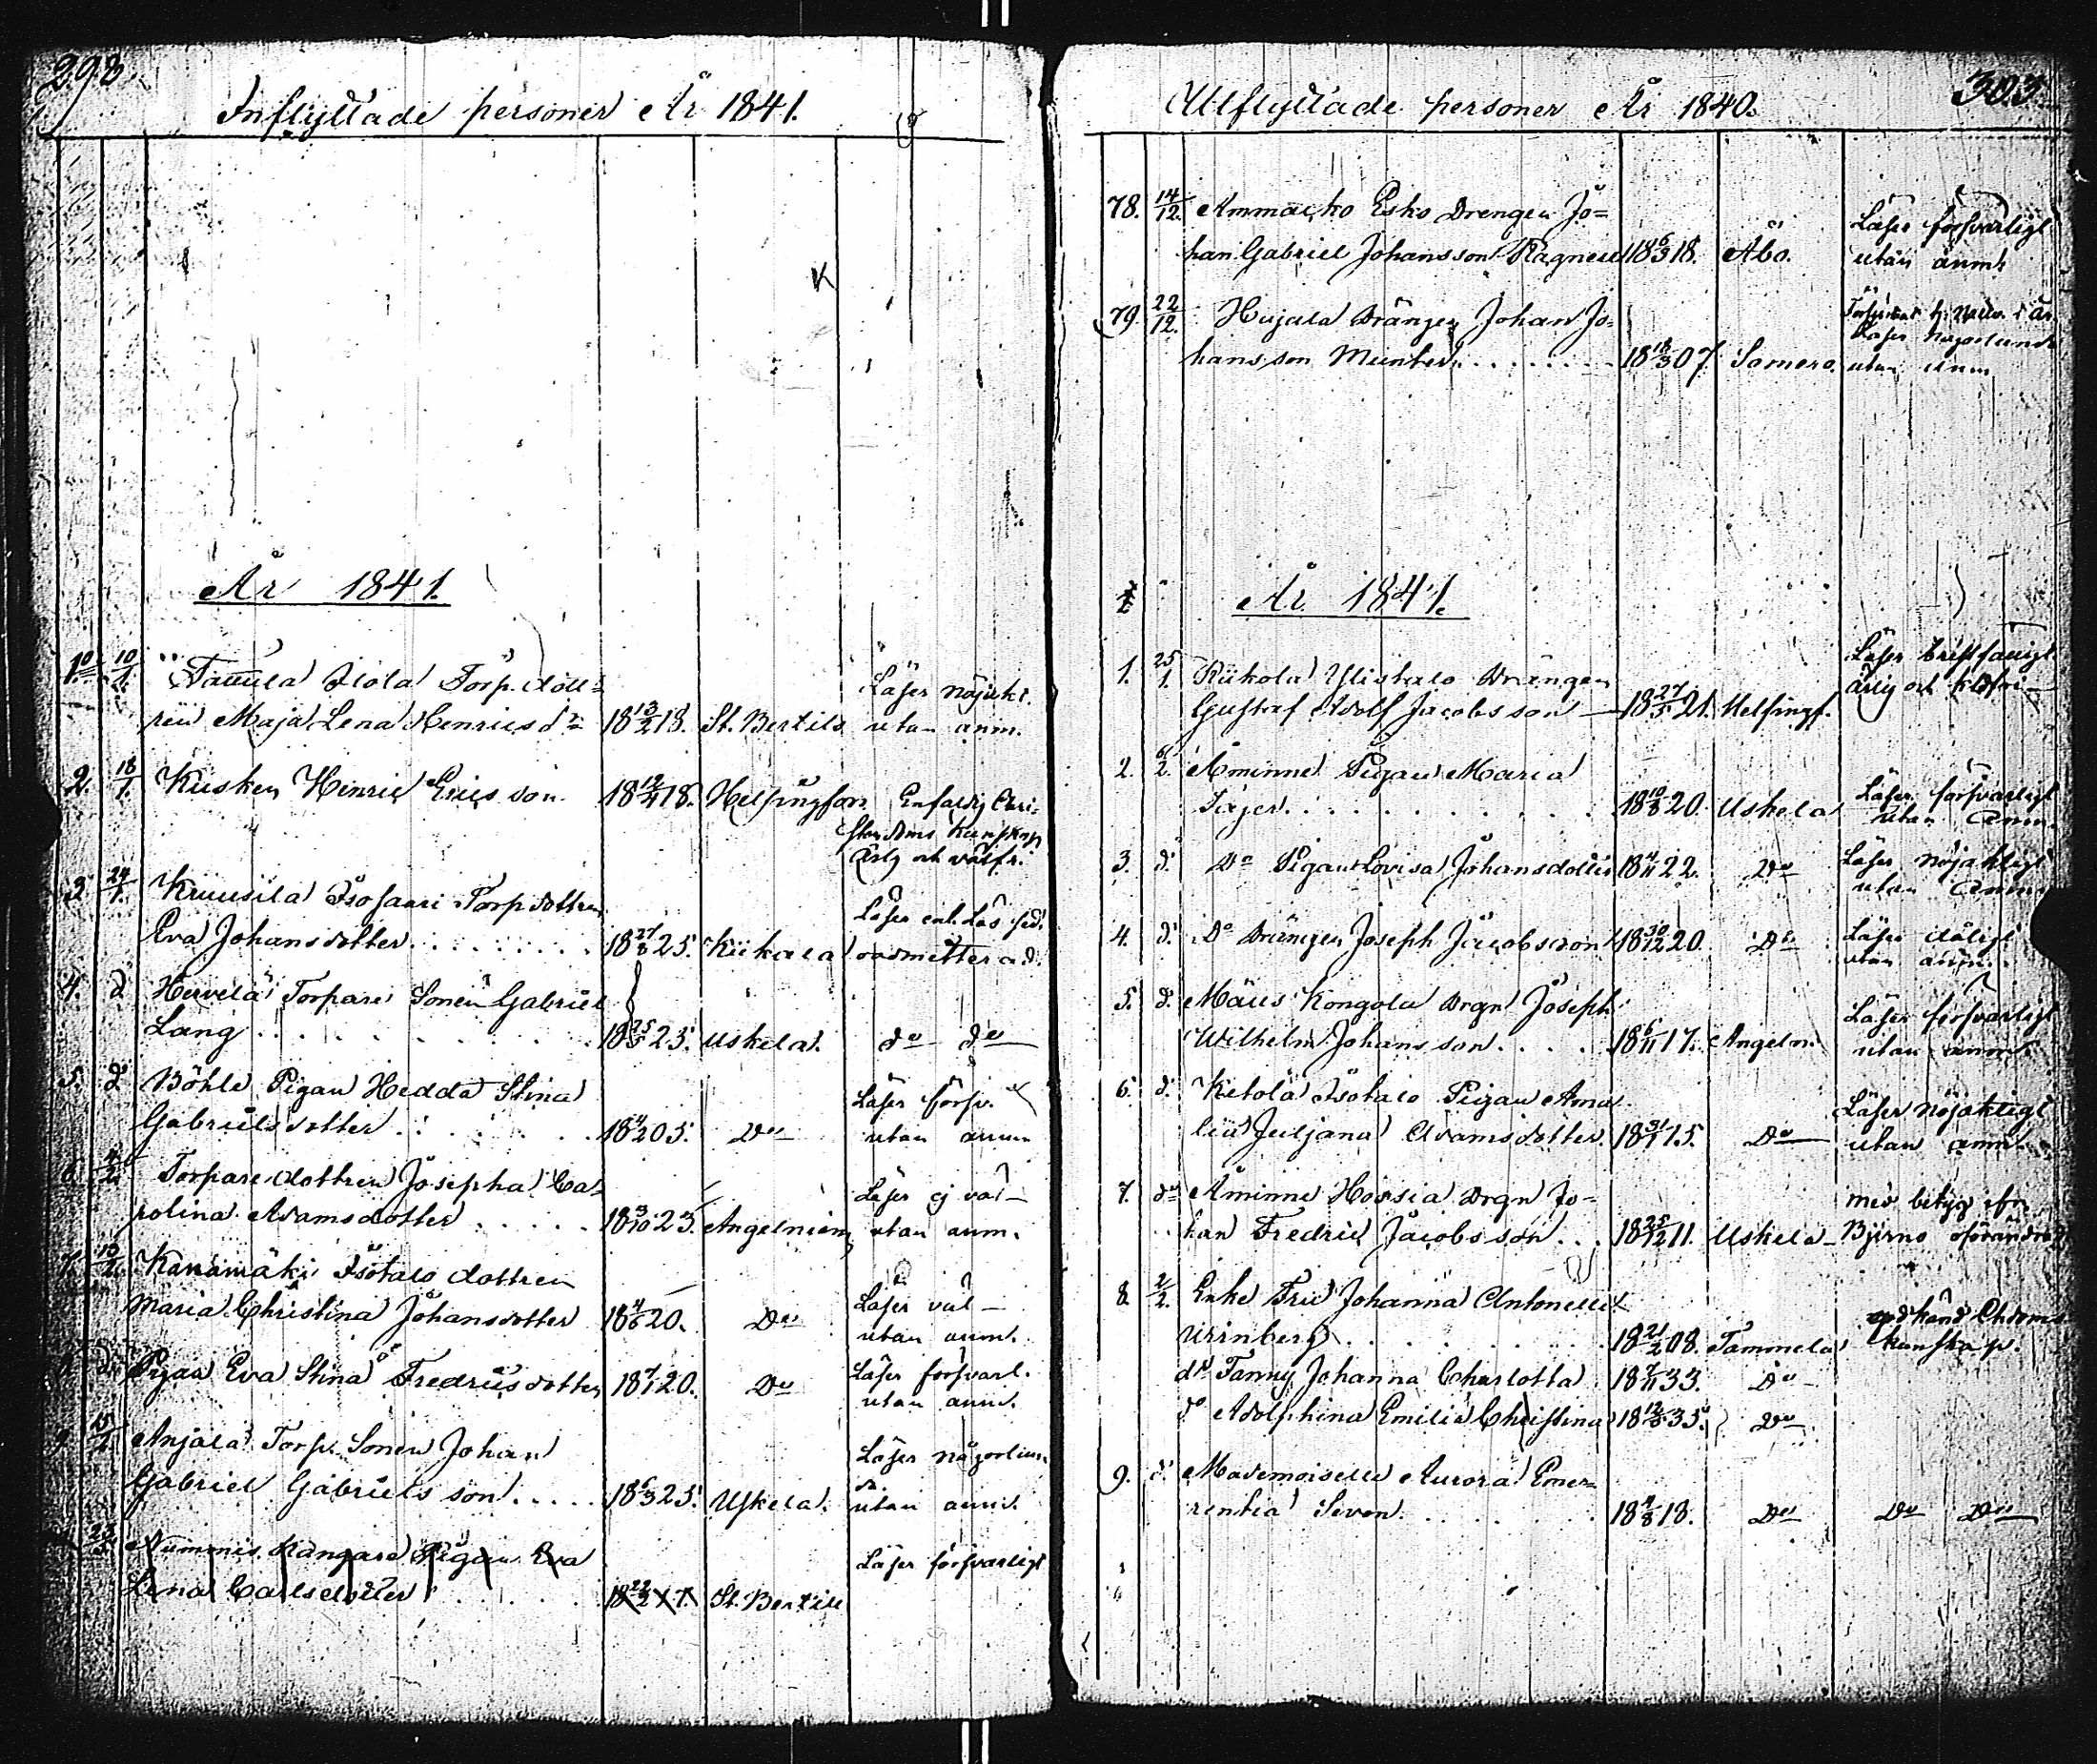 298
Inflyttade personer År 1841.
År 1841.
1º 10/1. Isotalo Torp. dott=
ren Maja Lena Henricsdr 18 13/2 18. St. Bertils Läser nöjakt. utan anm.
2. 18/1. Kusken Henric Ericsson 18 12/4 18. Helsingfors Enfaldig Chri-
stendoms kunskap
ärlig och välfr.
3. 24/1. Kruusila Isosaari Torp dottren
Eva Johansdotter 18 27/8 25. Kiikala Läser enl. Läs sed.
oadmitterad.
4. dº Hervelä Torpare Sonen Gabriel
Lang 18 25/3 23. Uskela. dº dº
5. dº Böhle Pigan Hedda Stina
Gabrielsdotter 18 4/2 05. Dº Läser försv.
utan anm
6. 4/2. Torpare dottren Josepha Ca-
rolina Adamsdotter 18 3/10 23. Angelniemi Läser ej väl
utan anm.
7. 13/2. Kanamäki Isotalo dottren
Maria Christina Johansdotter 18 4/6 20. Dº Läser väl
utan anm.
8. dº Pigan Eva Stina Fredricsdotter 18 7/1 20. Dº Läser försvarl.
utan anm.
9. 15/2. Anjala Torp. Sonen Johan
Gabriel Gabrielsson 18 6/3 25. Uskela. Läser någorlun-
da.
utan anm.
23/3 Nummis Kangare Pigan Eva
Lena Carlsdotter 18 22/2 17. St. Bertils Läser försvarligt
303
Utflyttade personer År 1840.
78. 14/12. Ammacko Esko Drengen Jo=
han Gabriel Johansson Ragnell 18 6/3 18. Åbo. Läser försvarligt
utan anm
79. 22/12. Hujala Drängen Johan Jo-
hansson Munter 18 18/3 07. Somero. Läser någorlunda
utan anm
År 1841.
1. 25/1. Kiikola Ylistalo Drängen
Gustaf Adolf Jacobsson 18 27/3 21. Helsingf. Läser bristfälligt
ärlig och
2. 6/2. Åminne Pigan Maria
Jäger 18 10/8 20. Uskela Läser försvarligt
utan Anm.
3. dº Dº Pigan Lovisa Johansdotter 18 4/11 22. Dº Läser nöjaktigt
utan Anm
4. dº Dº Drängen Joseph Jacobsson 18 30/12 20. Dº Läser dåligt
utan anm.
5. dº Mäus Kongola Drgn Joseph
Wilhelm Johansson 18 6/11 17. Angeln. Läser försvarligt
utan anm.
6. dº Ketola Isotalo Pigan Ama
lia Juljana Adamsdotter 18 31/1 15. Dº Läser nöjaktigt
utan anm.
7. dº Åminne Hossia Drgn Jo-
han Fredric Jacobsson 18 25/12 11. Uskela med betyg ifr.
Bjerno oförändradt
8. 2/2. Enke Fru Johanna Antonella
Winberg 18 21/2 08. Tammela godkänd Chdoms
kunskap.
dº Fanny Johanna Charlotta 18 7/11 33. Dº
dº Adolphina Emilia Christina 18 12/8 35. Dº
9. dº Mademoiselle Aurora Emer-
rentia Sevon 18 4/8 18. Dº Dº Dº